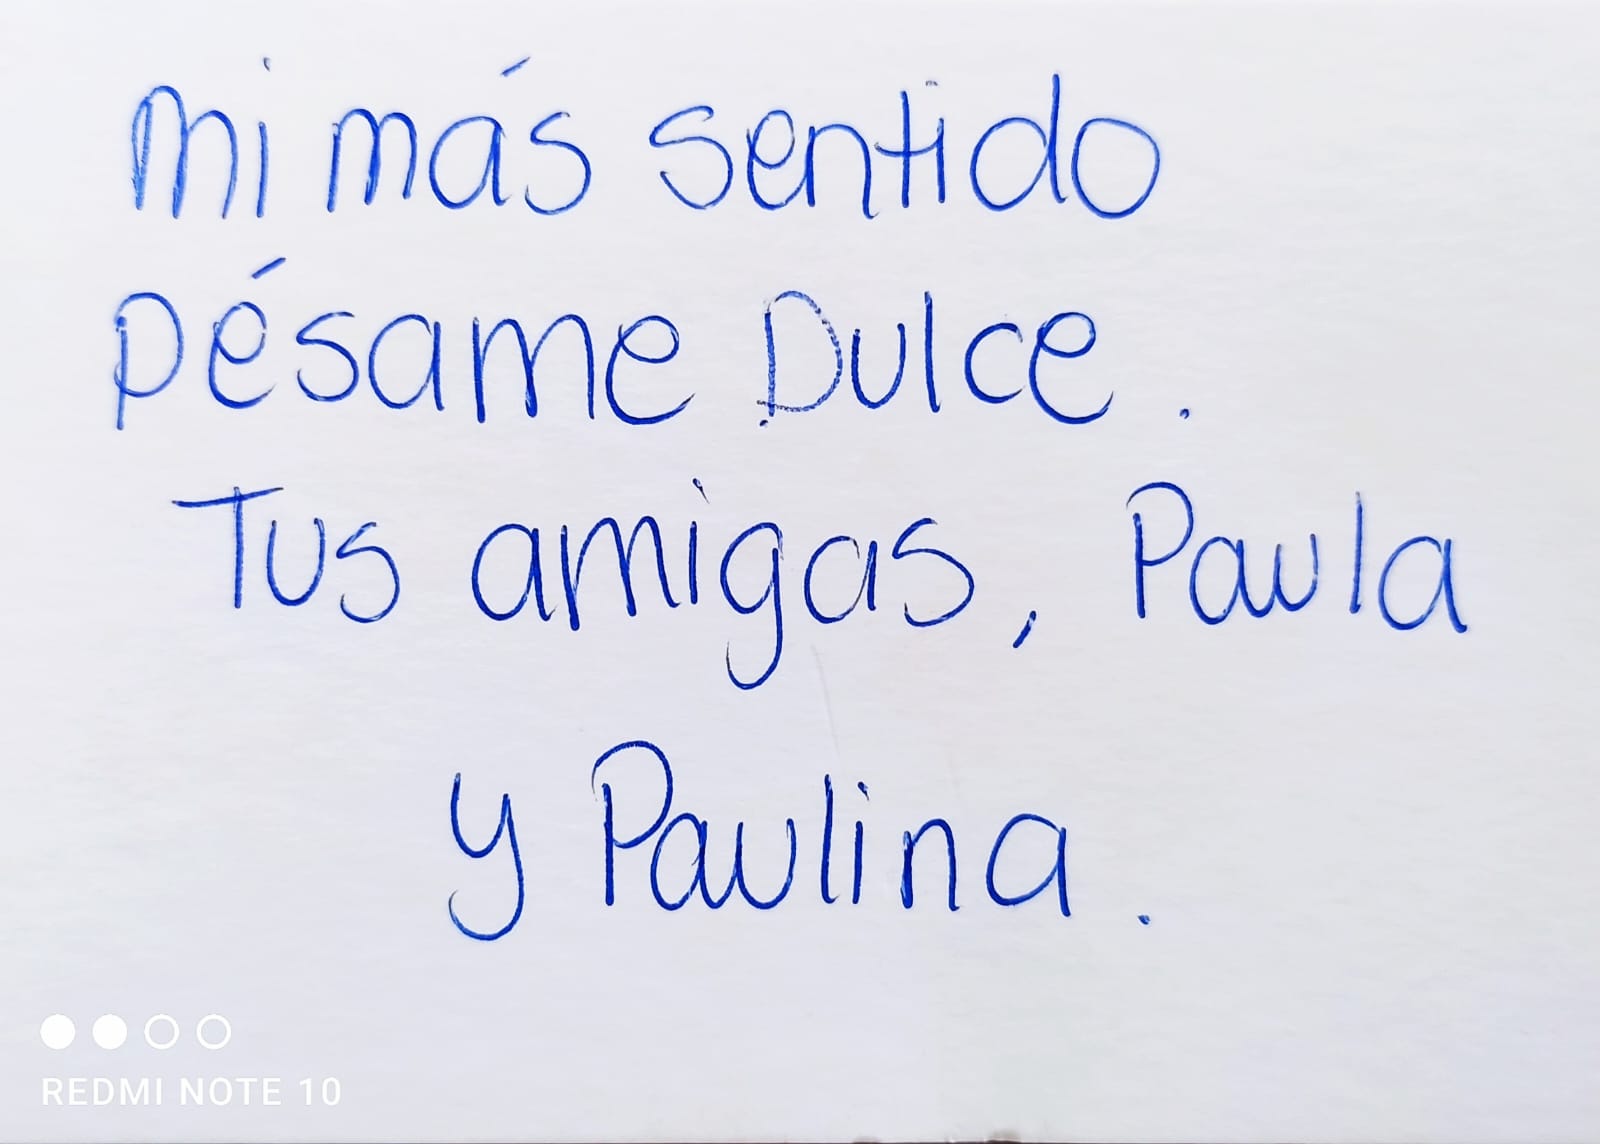 Mi más sentido
Pésame Dulce.
Tus amigas, Paula
y Paulina.
REDMI NOTE 10